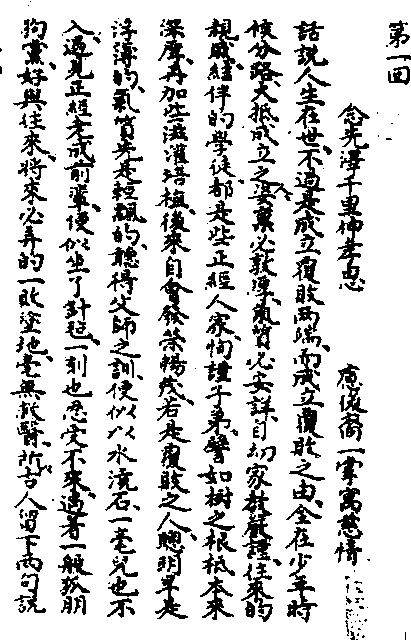 第一回
念先澤千里伸孝思 慮後裔一掌寓慈情
話說人生在世不過是成立覆敗兩端而成立覆敗之由全在少年時
候分路大抵成立之姿稟必敦厚氣質必安詳自幼家敎嚴謹往來的
親戚結伴的學徒都是些正經人家恂謹子弟譬如樹之根柢本來
深厚再加些滋灌培植後來自會發榮暢茂若是覆敗之人聰明早是
浮薄的氣質先是輕飄的聽得父師之訓便似以水澆石一毫兒也不
入遇見正經老成前輩便似坐了針氈一刻也忍受不來遇着一般狐朋
狗黨好與往來將來必弄的一敗塗地毫無救醫所古人留下兩句說